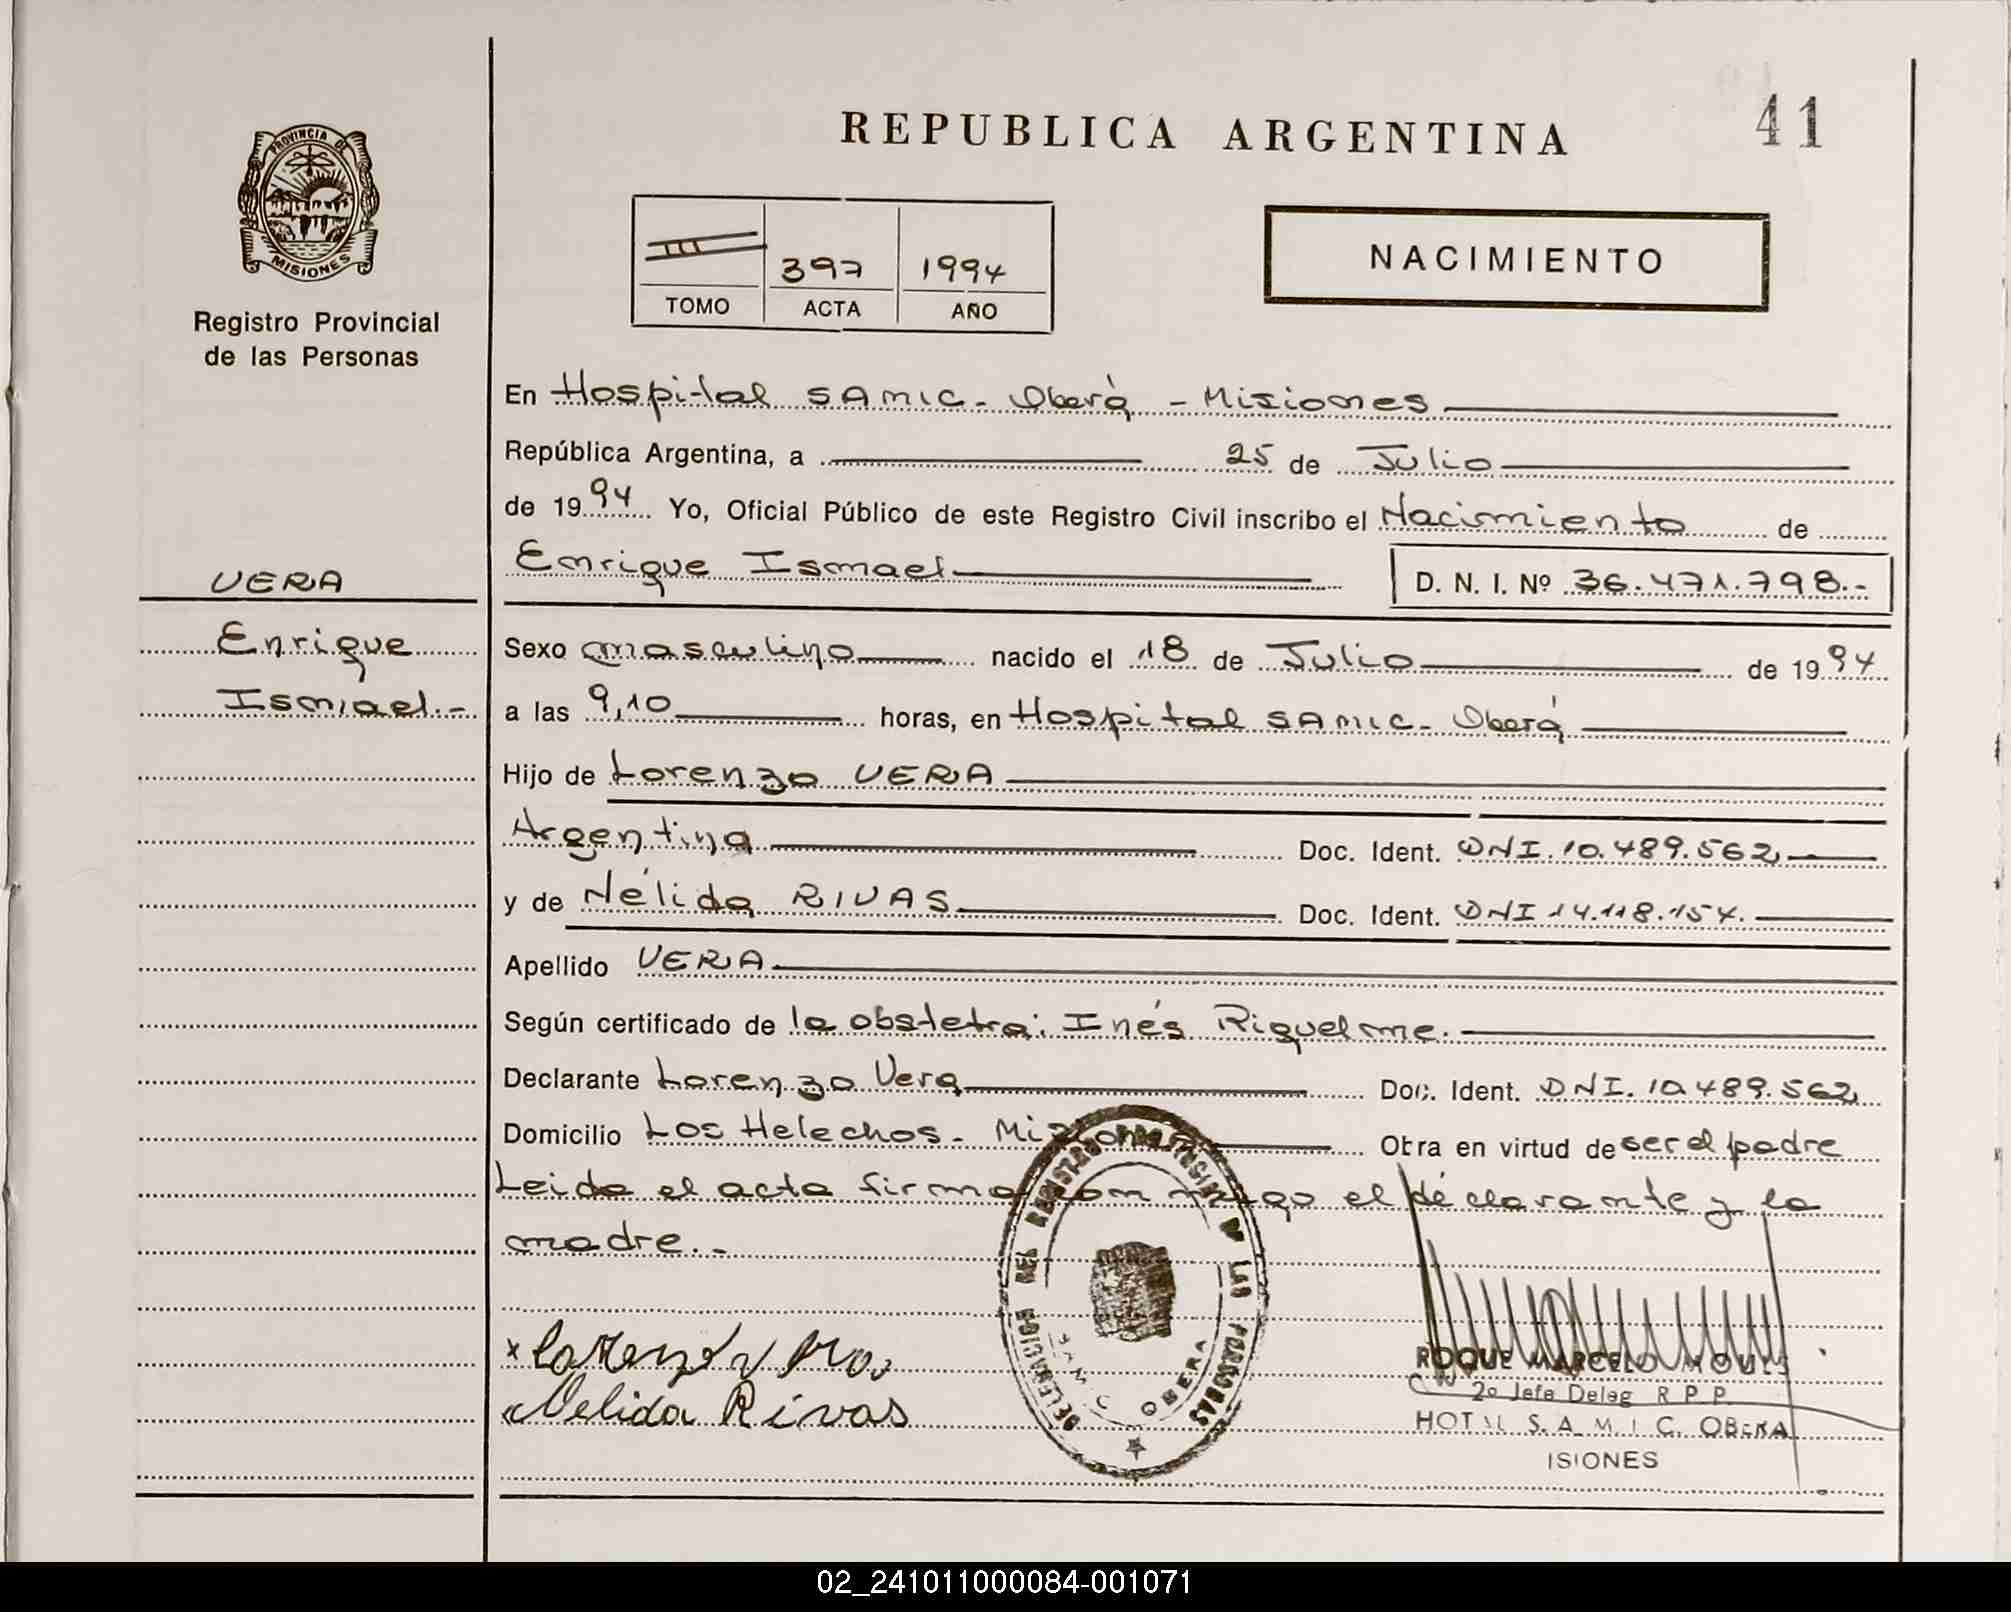 REPUBLICA ARGENTINA
41
PROVINCIA DE
MISIONES
Registro Provincial
de las Personas
III
397
1994
TOMO
ACTA
AÑO
NACIMIENTO
En Hospital SAMIC - Oberá - Misiones
República Argentina, a 25 de Julio
de 1994 Yo, Oficial Público de este Registro Civil inscribo el Nacimiento de
Enrique Ismael
D. N. I. Nº 36.471.798.-
VERA
Enrique
Ismael.-
Sexo masculino nacido el 18 de Julio de 1994
a las 9,10 horas, en Hospital SAMIC - Oberá
Hijo de Lorenzo VERA
Argentina Doc. Ident. DNI. 10.489.562
y de Nélida RIVAS Doc. Ident. DNI 14.118.154.
Apellido VERA
Según certificado de la obstetra: Inés Riquelme.
Declarante Lorenzo Vera Doc. Ident. DNI. 10.489.562
Domicilio Los Helechos - Misiones Obra en virtud de ser el padre
Leida el acta firma con migo el declarante y la
madre.-
DELEGACION DEL REGISTRO PROVINCIAL DE LAS PERSONAS
SAMIC OBERA
x Lorenzo Vera
Nelida Rivas
ROQUE MARCELO
2º Jefe Deleg R P P
S. A. M. I. C. OBERA
ISIONES
02_241011000084-001071